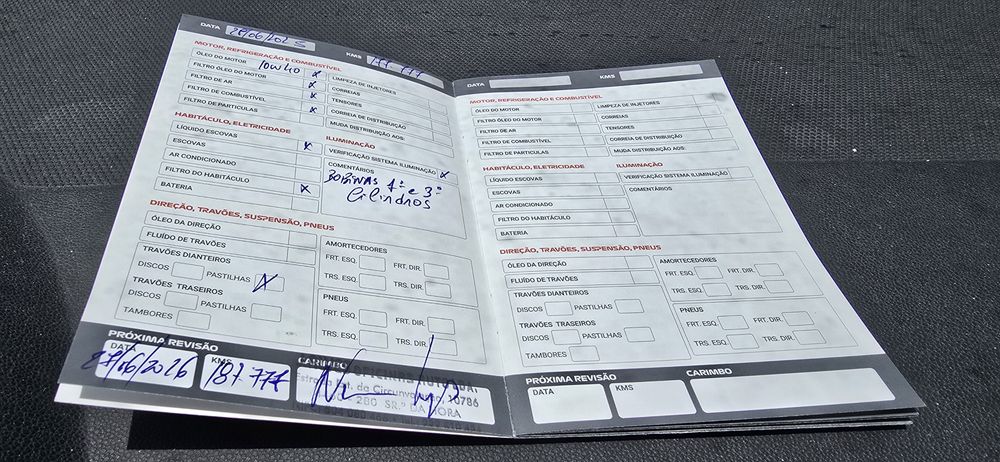 DATA 27/06/2025 KMS
MOTOR, REFRIGERAÇÃO E COMBUSTÍVEL
ÓLEO DO MOTOR 10W40 x LIMPEZA DE INJETORES
FILTRO ÓLEO DO MOTOR x CORREIAS
FILTRO DE AR x TENSORES
FILTRO DE COMBUSTÍVEL CORREIA DE DISTRIBUIÇÃO
FILTRO DE PARTICULAS x MUDA DISTRIBUIÇÃO AOS:
HABITÁCULO, ELETRICIDADE ILUMINAÇÃO
LÍQUIDO ESCOVAS x VERIFICAÇÃO SISTEMA ILUMINAÇÃO x
ESCOVAS COMENTÁRIOS
AR CONDICIONADO BOBINAS 1º e 3º
FILTRO DO HABITÁCULO Cilindros
BATERIA x
DIREÇÃO, TRAVÕES, SUSPENSÃO, PNEUS
ÓLEO DA DIREÇÃO AMORTECEDORES
FLUÍDO DE TRAVÕES FRT. ESQ. FRT. DIR.
TRAVÕES DIANTEIROS TRS. ESQ. TRS. DIR.
DISCOS PASTILHAS x
TRAVÕES TRASEIROS PNEUS
DISCOS PASTILHAS FRT. ESQ. FRT. DIR.
TAMBORES TRS. ESQ. TRS. DIR.
PRÓXIMA REVISÃO CARIMBO
DATA 27/06/2026 KMS 187.777
10786
SR.ª DA HORA
DATA KMS
MOTOR, REFRIGERAÇÃO E COMBUSTÍVEL
ÓLEO DO MOTOR LIMPEZA DE INJETORES
FILTRO ÓLEO DO MOTOR CORREIAS
FILTRO DE AR TENSORES
FILTRO DE COMBUSTÍVEL CORREIA DE DISTRIBUIÇÃO
FILTRO DE PARTICULAS MUDA DISTRIBUIÇÃO AOS:
HABITÁCULO, ELETRICIDADE ILUMINAÇÃO
LÍQUIDO ESCOVAS VERIFICAÇÃO SISTEMA ILUMINAÇÃO
ESCOVAS COMENTÁRIOS
AR CONDICIONADO
FILTRO DO HABITÁCULO
BATERIA
DIREÇÃO, TRAVÕES, SUSPENSÃO, PNEUS
ÓLEO DA DIREÇÃO AMORTECEDORES
FLUÍDO DE TRAVÕES FRT. ESQ. FRT. DIR.
TRAVÕES DIANTEIROS TRS. ESQ. TRS. DIR.
DISCOS PASTILHAS PNEUS
TRAVÕES TRASEIROS FRT. ESQ. FRT. DIR.
DISCOS PASTILHAS TRS. ESQ. TRS. DIR.
TAMBORES
PRÓXIMA REVISÃO CARIMBO
DATA KMS